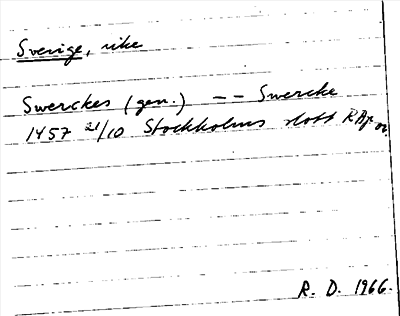 Sverige, rike
Swerckes (gen.) -- Swercke
1457 21/10 Stockholms slott RAp or
R. D. 1966.